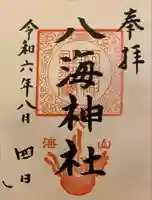 奉拝
八海神社
令和六年八月四日
海山